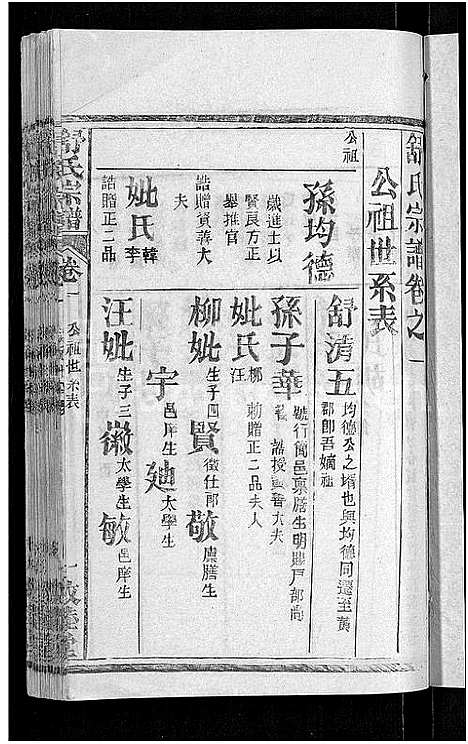 舒氏宗譜卷之一
公祖世系表
公祖
孫均德
歲進士以
賢良方正
舉推官
誥贈資善大
夫
妣氏
韓
李
誥贈正二品
舒清五
均德公之壻也與均德同遷至黃
郡即吾嫡祖
孫子華
號行簡邑稟膳生明賜戸部尚
誥授資善大夫
妣氏
柳
汪
勅贈正二品夫人
柳妣
生子四
賢
徵仕郎
敬
廩膳生
宇
邑庠生
廸
太學生
汪妣
生子三
徽
太學生
敏
邑庠生
舒氏宗譜
卷一
公祖世系表
一